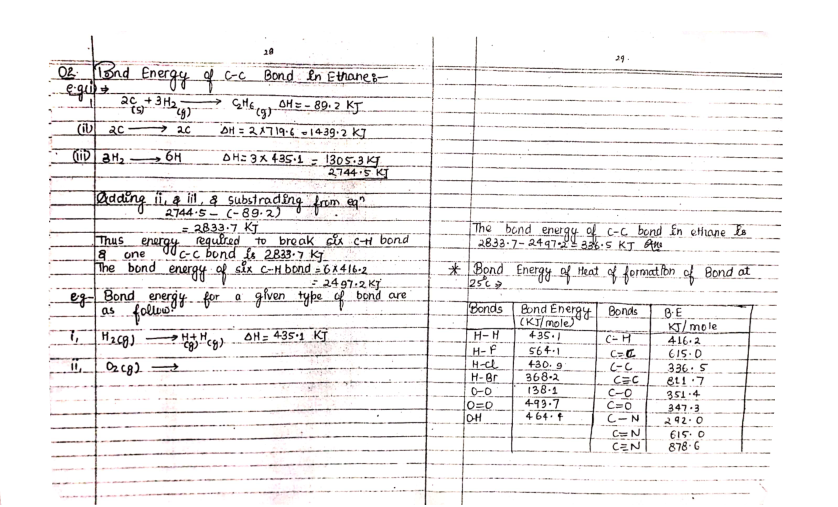 28
02. Bond Energy of C-C Bond in Ethane:-
e.g(i) →
2C(s) + 3H2(g) ⟶ C2H6(g) ΔH = - 89.2 KJ
(ii) 2C ⟶ 2C ΔH = 2x719.6 = 1439.2 KJ
(iii) 3H2 ⟶ 6H ΔH = 3 x 435.1 = 1305.3 KJ
2,744.5 KJ
Adding ii, & iii, & substrading from eqn
2744.5 - (-89.2)
= 2833.7 KJ
Thus energy required to break six C-H bond
& one C-C bond is 2833.7 KJ
The bond energy of six C-H bond = 6x416.2
= 2497.2 KJ
e.g- Bond energy for a given type of bond are
as follow:
i, H2(g) ⟶ H(g) + H(g) ΔH = 435.1 KJ
ii, O2(g) ⟶
29.
The bond energy of C-C bond in ethane is
2833.7 - 2497.2 = 336.5 KJ Ans
* Bond Energy of Heat of formation of Bond at
25c →
Bonds Bond Energy (KJ/mole) Bonds B.E KJ/mole
H-H 435.1 C-H 416.2
H-F 564.1 C=C 615.0
H-Cl 430.9 C-C 336.5
H-Br 368.2 C≡C 811.7
O-O 138.1 C-O 351.4
O=O 493.7 C=O 347.3
OH 464.4 C-N 292.0
C=N 615.0
C≡N 878.6